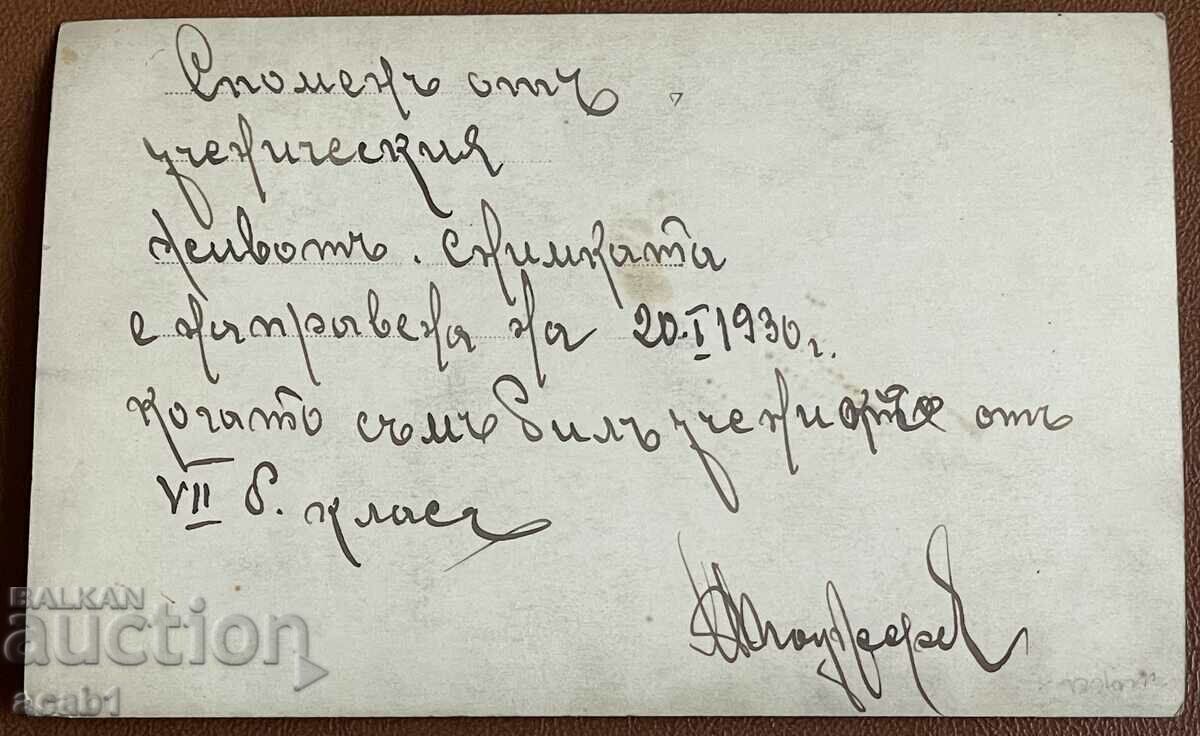 Споменъ отъ
ученическия
животъ. снимката
е направена на 20.I 1930 г.
когато съмъ билъ от
VII б. класъ
BALKAN
auction
acab1